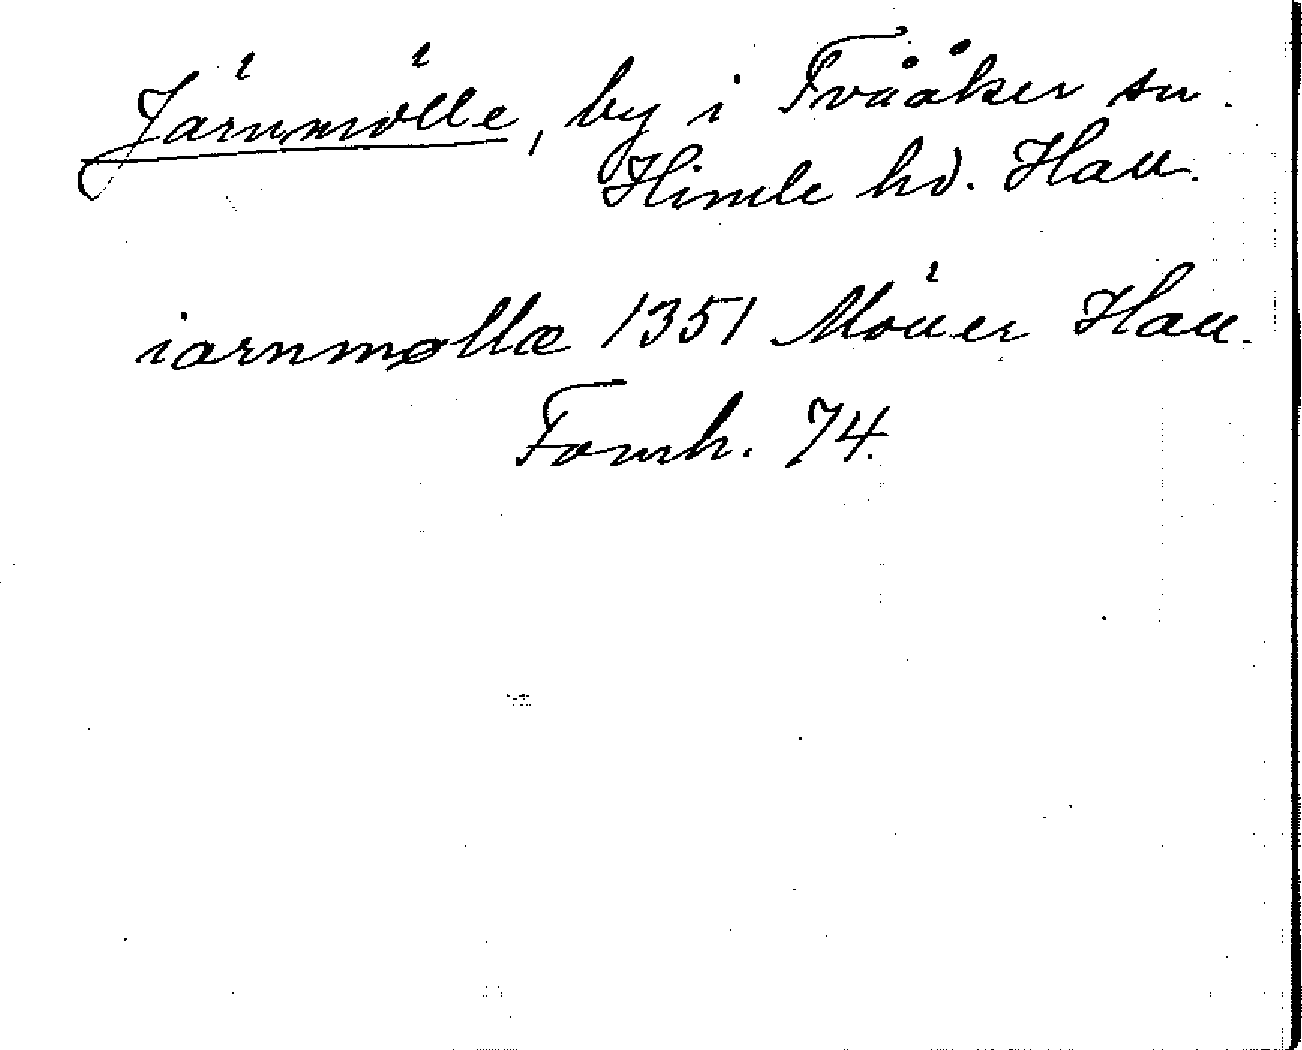 Järnmölle, by i Tvååker sn.
Himle hd. Hall.
iarnmøllæ 1351 Möller Hall.
Fornh. 74.